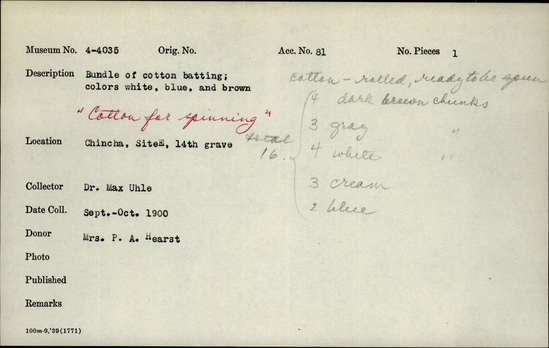 Museum No. 4-4035 Orig. No. Acc. No. 81 No. Pieces 1
Description Bundle of cotton batting;
colors white, blue, and brown
"Cotton for spinning"
cotton - rolled, ready to be spun
4 dark brown chunks
3 gray "
4 white "
3 cream
2 blue
total
16.
Location Chincha, SiteE, 14th grave
Collector Dr. Max Uhle
Date Coll. Sept.-Oct. 1900
Donor Mrs. P. A. Hearst
Photo
Published
Remarks
100m-9,'39(1771)